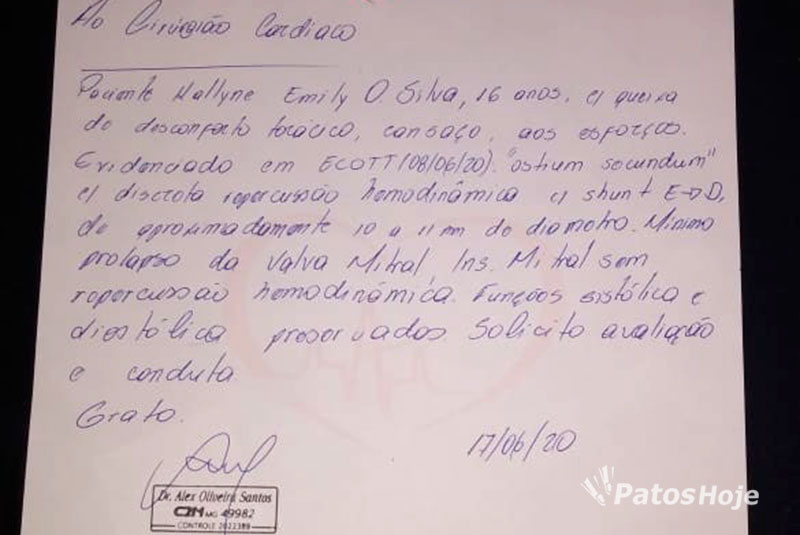 Ao Cirurgião Cardiaco
Paciente Kallyne Emily O. Silva, 16 anos, c/ queixa
de desconforto torácico, cansaço, aos esforços.
Evidenciado em ECOTT (08/06/20). "ostium secundum"
c/ discreta repercussão hemodinâmica c/ shunt E→D,
de aproximadamente 10 a 11 mm de diametro. Mínimo
prolapso da Valva Mitral, Ins. Mitral sem
repercussão hemodinâmica. Funções sistólica e
diastólica preservadas Solicito avaliação
e conduta
Grato.
17/06/20
Dr. Alex Oliveira Santos
CRM MG 49982
CONTROLE 2022389
PatosHoje